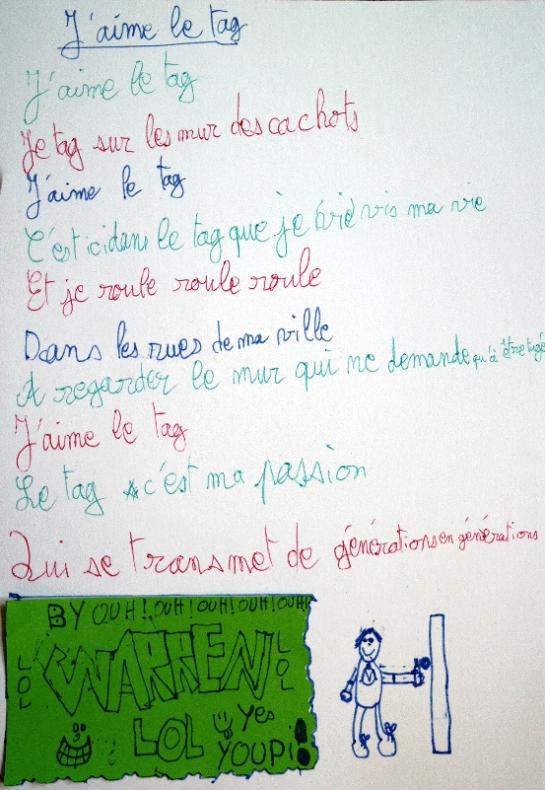 J'aime le tag
J'aime le tag
Je tag sur les mur des cachots
J'aime le tag
C'est ici dans le tag que je (vie) vis ma vie
Et je roule roule roule
Dans les rues de ma ville
A regarder le mur qui ne demande qu'à être tagé
J'aime le tag
Le tag c'est ma passion
Qui se transmet de générations en générations
BY OUH! OUH! OUH! OUH! OUH!
LOL
WARREN
LOL
LOL
Yes
YOUPi!